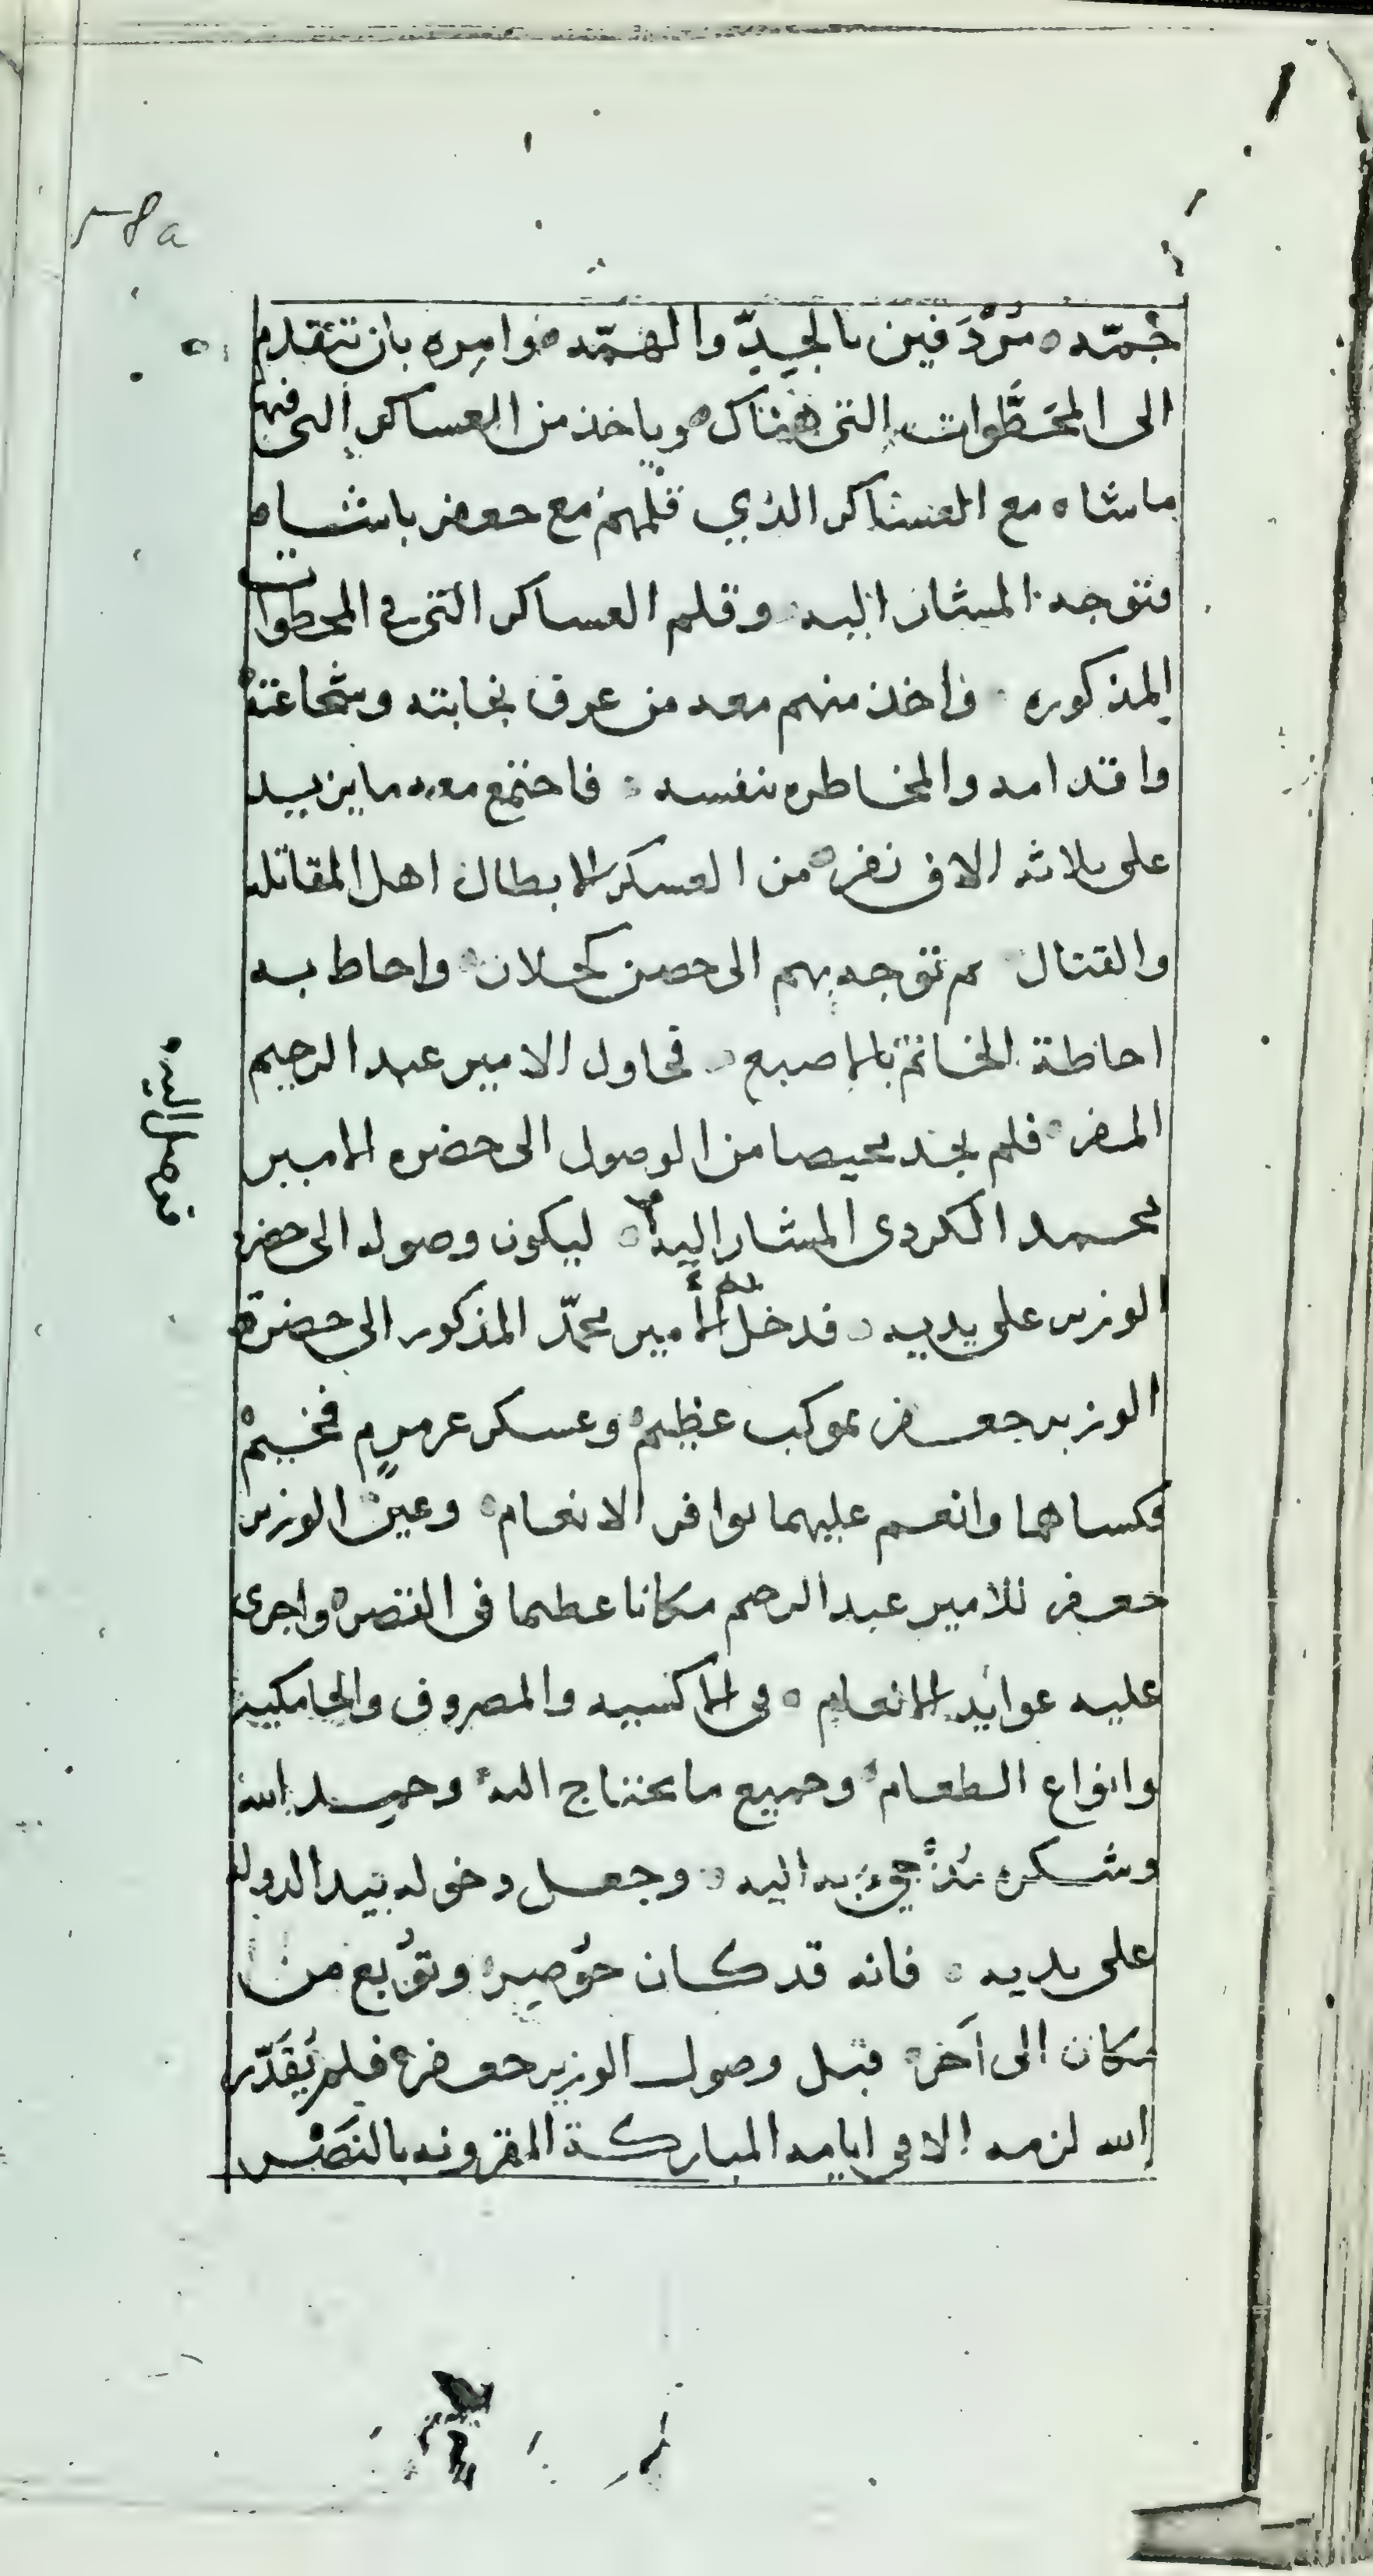 جُمّه مُرْدَفين بالجِدّ والهمّه وامره بان يتقدم
الى المحَطّوات التى هناك وياخذ من العساكر التى فيها
ماشاه مع العساكر الذي قلمهم مع جعفر باشاه
فتوجه المشار اليه وقلم العساكر التى في المحطوات
المذكوره واخذ منهم معه من عرف نجابته وشجاعته
واقدامه والمخاطره بنفسه فاجتمع معه ما يزيد
على ثلاثه الاف نفر من العسكر الابطال اهل المقاتله
والقتال ثم توجه بهم الى حصن كحلان واحاط به
احاطة الخاتم بالاصبع فحاول الامير عبد الرحيم
المفر فلم يجد محيصا من الوصول الى حضره الامير
محمد الكردى المشار اليه ليكون وصوله الى حضره
فوصل اليه
الوزير على يديه فدخل الأمير محمّد المذكور الى حضرة
الوزير جعفر بموكب عظيم وعسكر عرمرم فخيم
فكساهما وانعم عليهما بوافر الانعام وعين الوزير
جعفر للامير عبد الرحيم مكانا عظيما في القصر واجرى
عليه عوايد الانعام في الاكسيه والمصروف والجامكيه
وانواع الطعام وجميع ما يحتاج اليه وحمد الله
وشكره مُذ جيْ به اليه وجعل دخوله بيد الدوله
على يديه فانه قد كان حوُصر وتوُبع من
مكان الى آخر قبل وصول الوزير جعفر فلم يُقَدّر
الله لزمه الا في ايامه المباركة المقرونه بالنَصْر